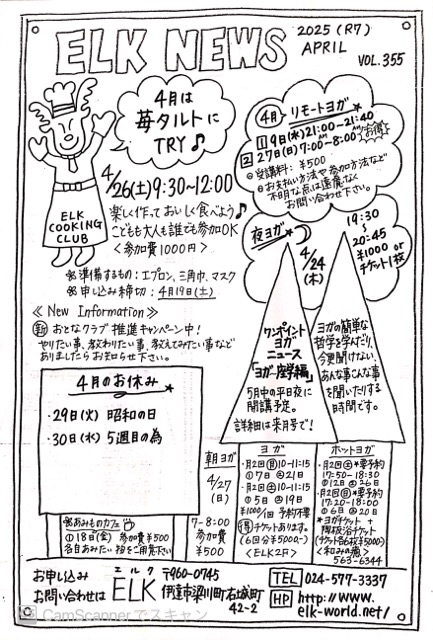 ELK NEWS
2025 (R7)
APRIL
VOL.355
4月は
苺タルトに
TRY♪
ELK
COOKING
CLUB
4/26(土)9:30~12:00
楽しく作っておいしく食べよう♪
こどもも大人も誰でも参加OK
<参加費1000円>
※準備するもの:エプロン、三角巾、マスク
※申し込み締切:4月19日(土)
4月 リモートヨガ
1 9日(水)21:00-21:40
2 27日(日)7:00-8:00
お得♪
受講料:¥500
お支払い方法や参加方法など
不明な点は遠慮なく
お問い合わせ下さい。
夜ヨガ
4/24
(木)
19:30
~
20:45
¥1000 or
チケット1枚
≪New Information≫
新 おとなクラブ推進キャンペーン中!
やりたい事、教わりたい事、教えてみたい事など
ありましたらお知らせ下さい。
4月のお休み
・29日(火) 昭和の日
・30日(水) 5週目の為
ワンポイント
ヨガ
ニュース
「ヨガ座学編」
5月中の平日夜に
開講予定。
詳細は来月号で!
ヨガの簡単な
哲学を学んだり、
今更聞けない
あんな事こんな事
を聞いたりする
時間です。
※あみものカフェ
①18日(金) 参加費¥500
各自あみたい物をご用意下さい
朝ヨガ
4/27
(日)
7-8:00
参加費
¥500
ヨガ
・月2回(月)10-11:15
①7日②21日
・月2回(土)10-11:15
①5日②19日
¥1000/1回 予約不要
得 チケットあります。
(6回分¥5000-)
<ELK2F>
ホットヨガ
・月2回(土)*要予約
17:50-18:30
①12日②26日
・月2回(日)*要予約
17:20-18:00
①6日②20日
*ヨガチケット+
陶板浴チケット
(チケット各6枚¥5000)
<和みの癒>
563-6344
お申し込み
お問い合わせは
エルク
ELK
〒960-0745
伊達市梁川町右城町
42-2
TEL 024-577-3337
HP http://www.
elk-world.net/
CamScannerでスキャン